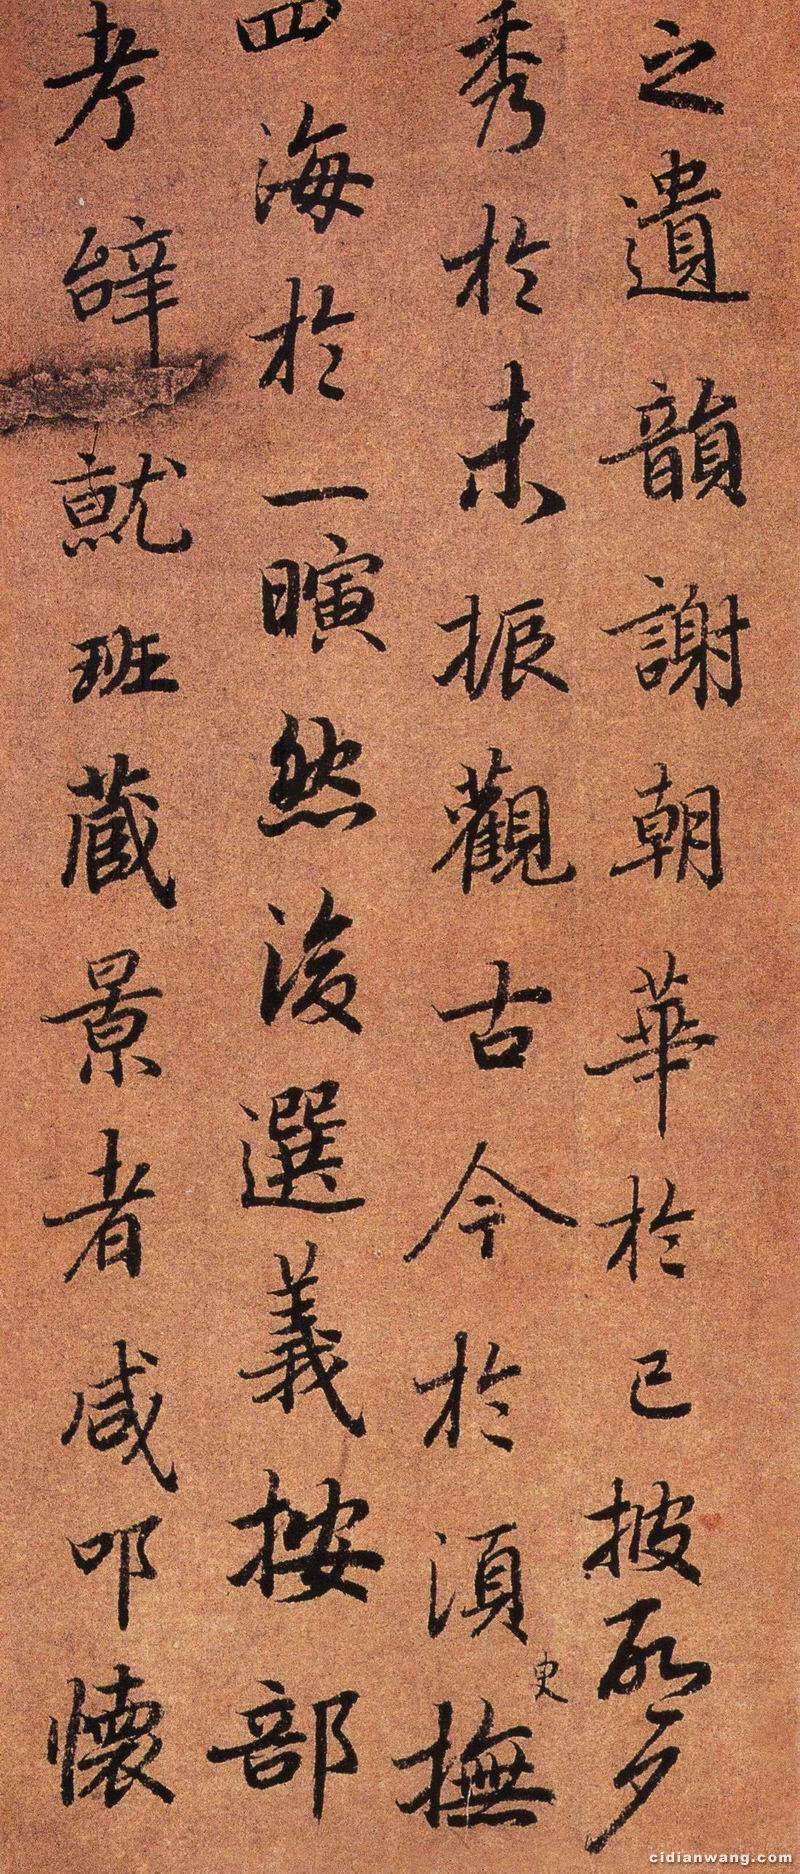 之遺韻謝朝華於已披啓夕
秀於未振觀古今於湏臾撫
四海於一瞚然後選義按部
考辭就班藏景者咸叩懷
cidianwang.com